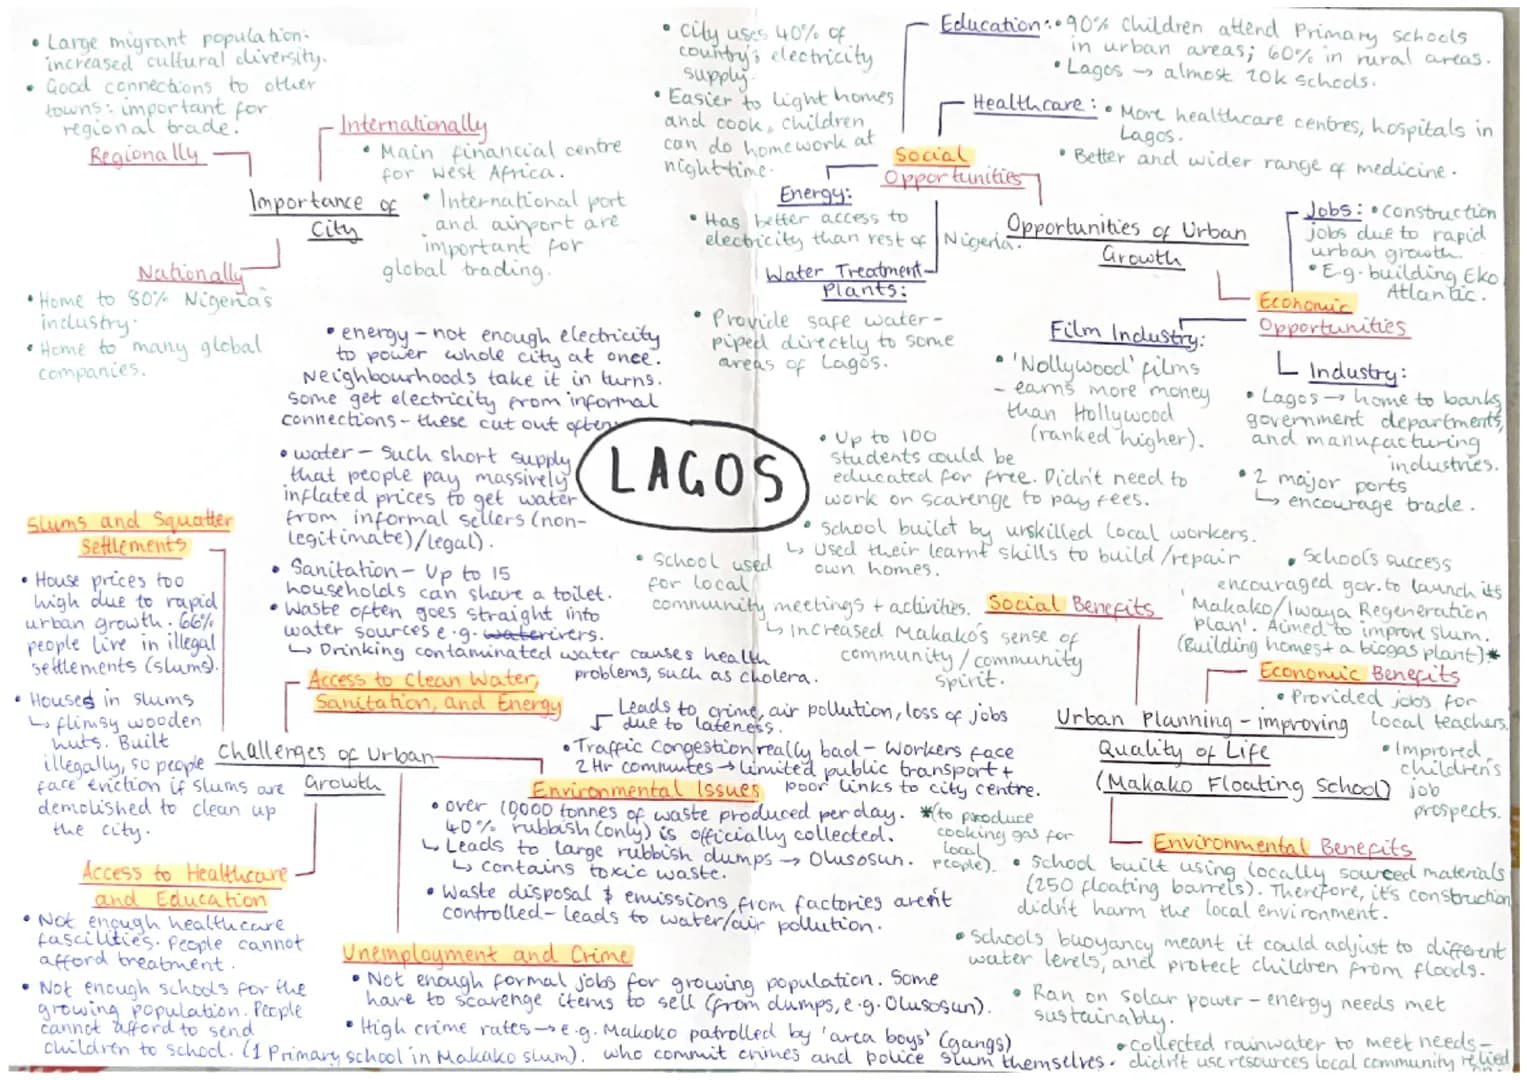 • Large migrant population:
increased cultural diversity.
• Good connections to other
towns: important for
regional trade.
Regionally
Internationally
• Main financial centre
for West Africa.
• International port
and airport are
important for
global trading.
Importance of
City
Nationally
• Home to 80% Nigeria's
industry.
• Home to many global
companies.
• City uses 40% of
country's electricity
supply.
• Easier to light homes
and cook, children
can do homework at
night-time.
Energy:
• Has better access to
electricity than rest of Nigeria.
Water Treatment
Plants:
• Provide safe water-
piped directly to some
areas of Lagos.
Social
Opportunities
Education: • 90% children attend Primary schools
in urban areas; 60% in rural areas.
• Lagos → almost 20k schools.
Healthcare: • More healthcare centres, hospitals in
Lagos.
• Better and wider range of medicine.
Opportunities of Urban
Growth
Jobs: • construction
jobs due to rapid
urban growth.
• E.g. building Eko
Atlantic.
Economic
Opportunities
Film Industry:
• 'Nollywood' films
- earns more money
than Hollywood
(ranked higher).
Industry:
• Lagos → home to banks,
government departments,
and manufacturing
industries.
• 2 major ports
↳ encourage trade.
LAGOS
• energy - not enough electricity
to power whole city at once.
Neighbourhoods take it in turns.
some get electricity from informal
connections - these cut out often.
• water - such short supply
that people pay massively
inflated prices to get water
from informal sellers (non-
legitimate)/legal).
• Sanitation - Up to 15
households can share a toilet.
• Waste often goes straight into
water sources e.g. water rivers.
↳ Drinking contaminated water causes health
problems, such as cholera.
Access to Clean Water,
Sanitation, and Energy
Slums and Squatter
Settlements
• House prices too
high due to rapid
urban growth. 66%
people live in illegal
settlements (slums).
• Houses in slums
↳ flimsy wooden
huts. Built
illegally, so people
face eviction if slums are
demolished to clean up
the city.
Challenges of Urban
Growth
Access to Healthcare
and Education
• Not enough healthcare
fascilities. People cannot
afford treatment.
• Not enough schools for the
growing population. People
cannot afford to send
children to school. (1 Primary school in Makako slum).
Leads to crime, air pollution, loss of jobs
due to lateness.
• Traffic Congestion really bad - Workers face
2 Hr commutes → limited public transport +
poor links to city centre.
Environmental Issues
• over 10,000 tonnes of waste produced per day.
40% rubbish (only) is officially collected.
↳ Leads to large rubbish dumps → Olusosun.
↳ contains toxic waste.
• Waste disposal & emissions from factories aren't
controlled - leads to water/air pollution.
*(to produce
cooking gas for
local
people).
Unemployment and Crime
• Not enough formal jobs for growing population. Some
have to scavenge items to sell (from dumps, e.g. Olusosun).
• High crime rates → e.g. Makoko patrolled by 'area boys' (gangs)
who commit crimes and police slum themselves.
• Up to 100
students could be
educated for free. Didn't need to
work or scavenge to pay fees.
• school built by unskilled local workers.
↳ Used their learnt skills to build/repair
own homes.
• School used
for local
community meetings + activities.
↳ increased Makako's sense of
community/community
spirit.
Social Benefits
• School's success
encouraged gov. to launch its
'Makako/Iwaya Regeneration
Plan'. Aimed to improve slum.
(Building homes + a biogas plant)*
Economic Benefits
• Provided jobs for
local teachers.
• Improved
children's
job
prospects.
Urban Planning - improving
Quality of Life
(Makako Floating School)
Environmental Benefits
• School built using locally sourced materials
(250 floating barrels). Therefore, it's construction
didn't harm the local environment.
• Schools buoyancy meant it could adjust to different
water levels, and protect children from floods.
• Ran on solar power - energy needs met
sustainably.
• collected rainwater to meet needs-
didn't use resources local community relied